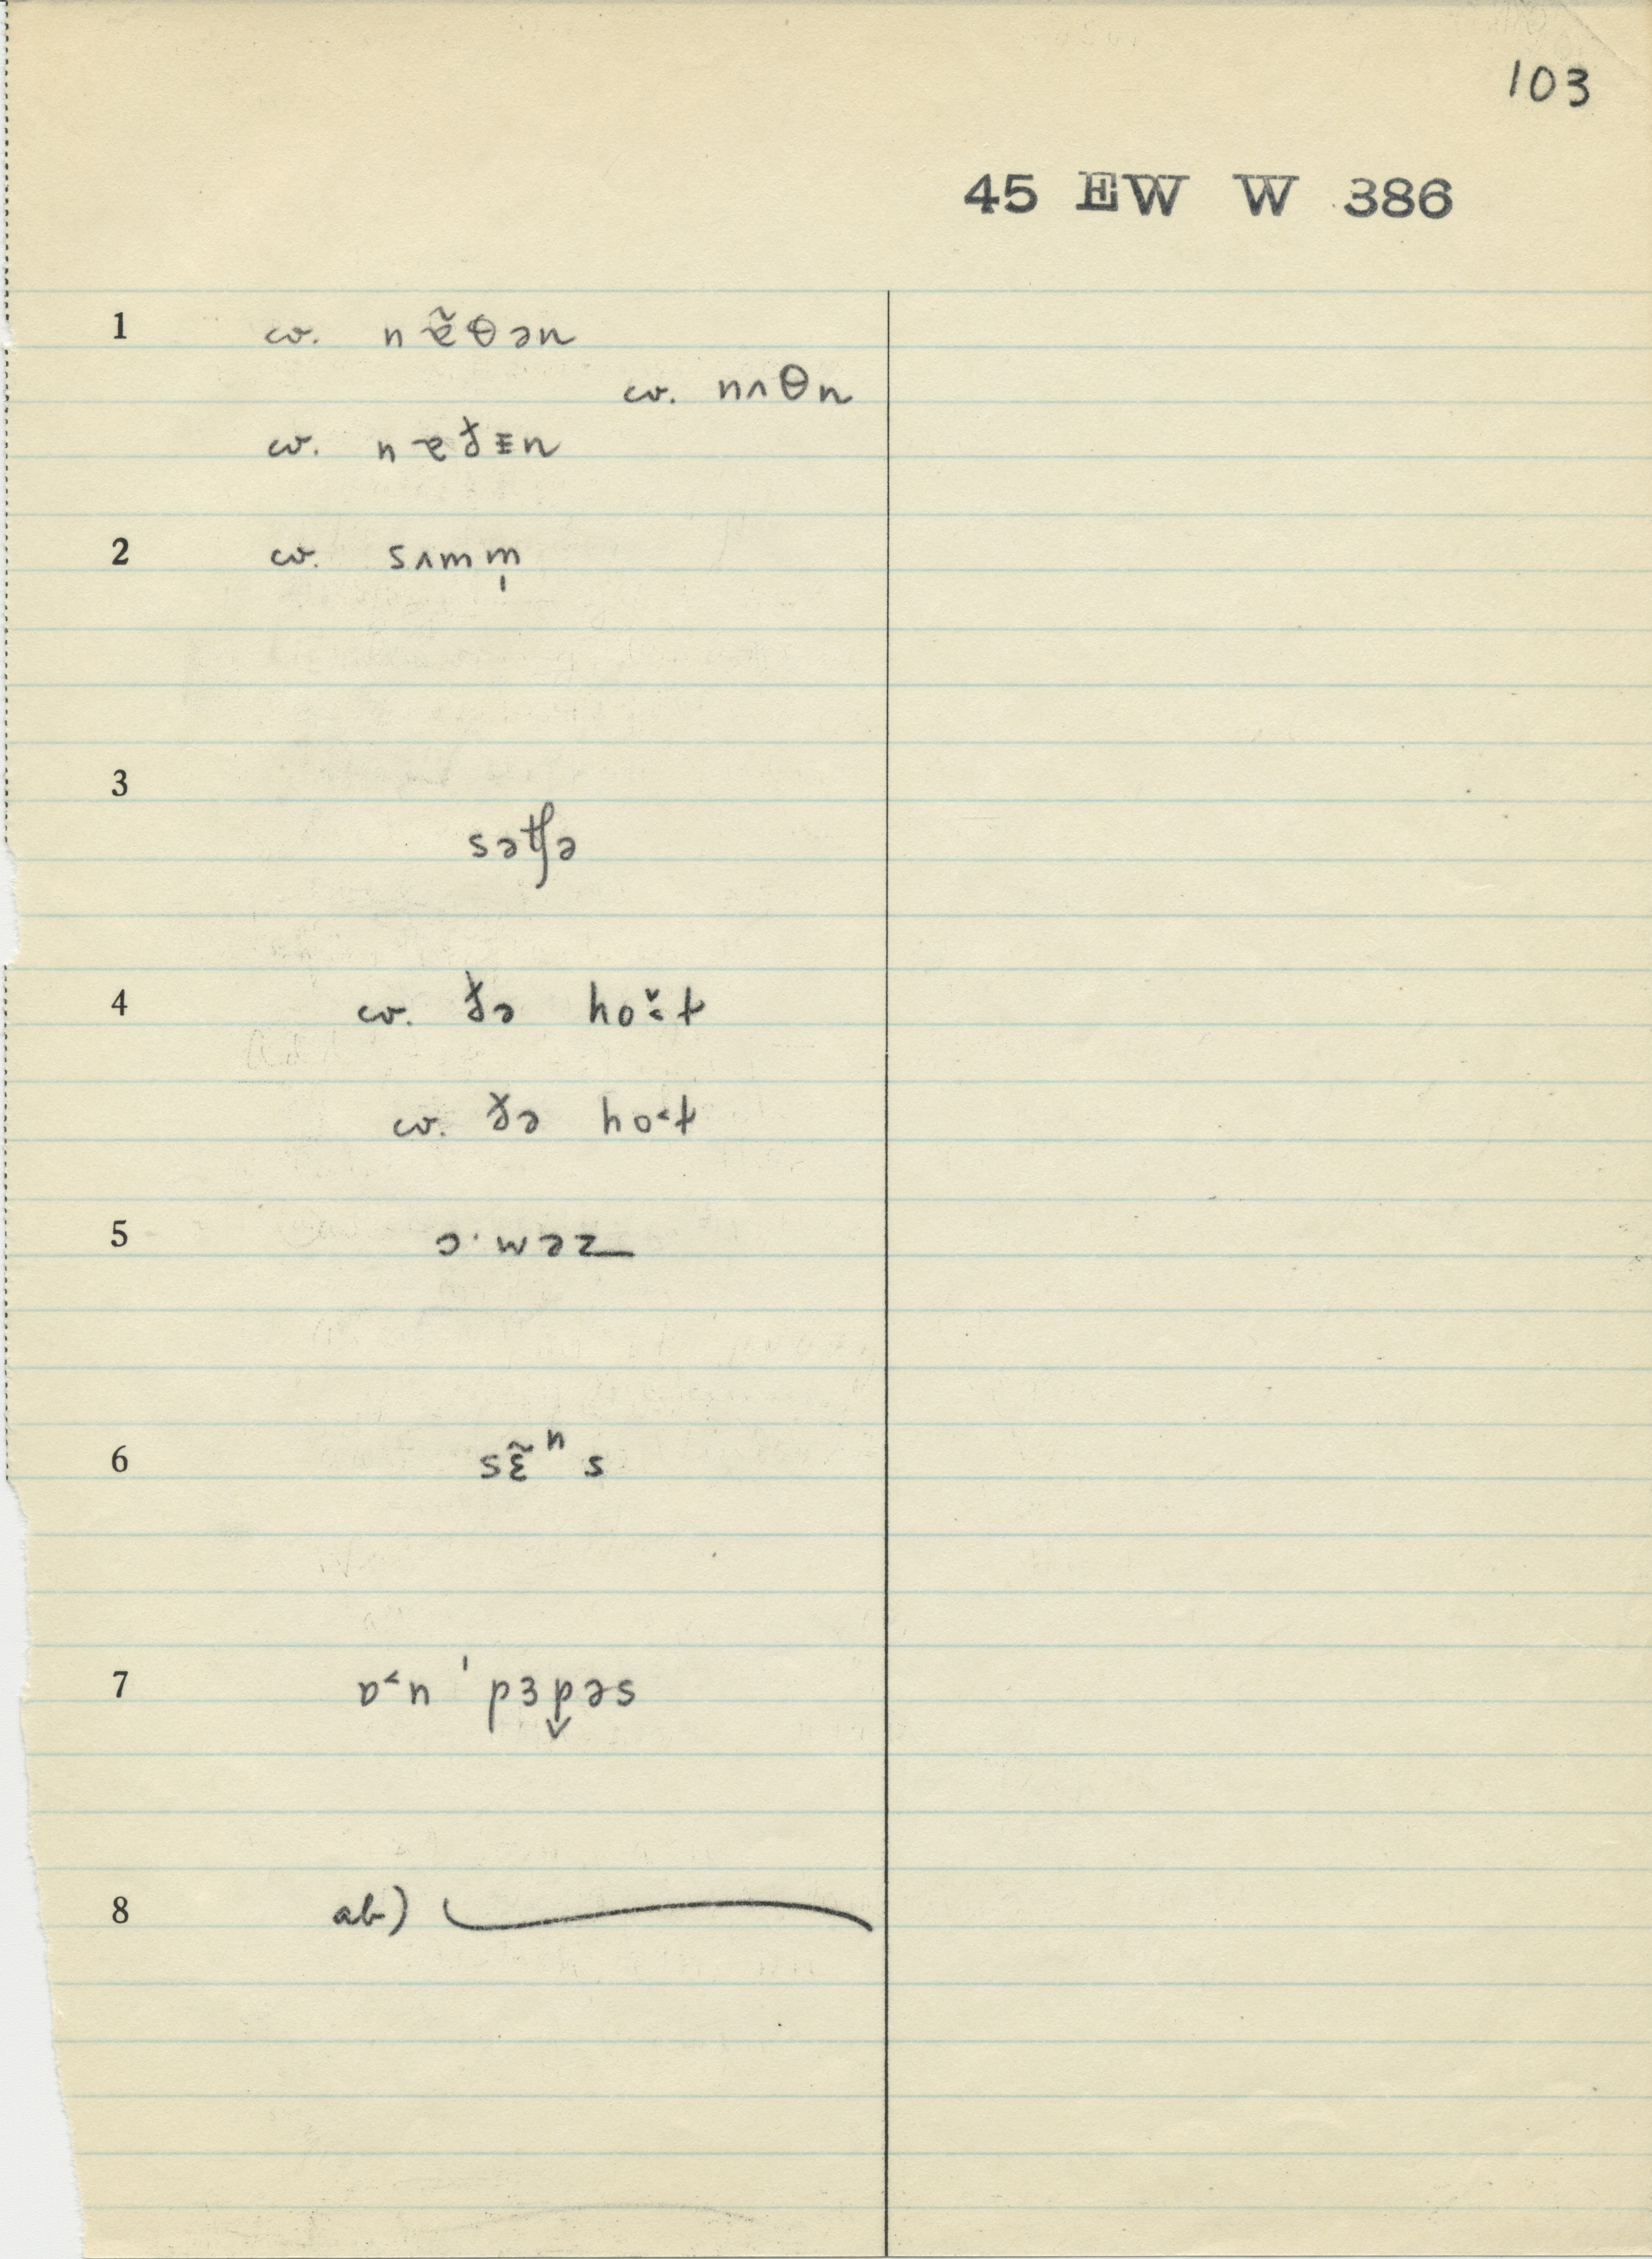 103
45 EW W 386
1 cv. nɐ̃θən
cv. nʌθn
cv. nɐɟɪn
2 cv. sʌmm̩
3 sətʃə
4 cv. ðə ho˔̆t
cv. ðə ho˂t
5 ɔ·wəz
6 sɛ̃ⁿs
7 ɒ˂n ˈpɜp̬əs
8 ab)